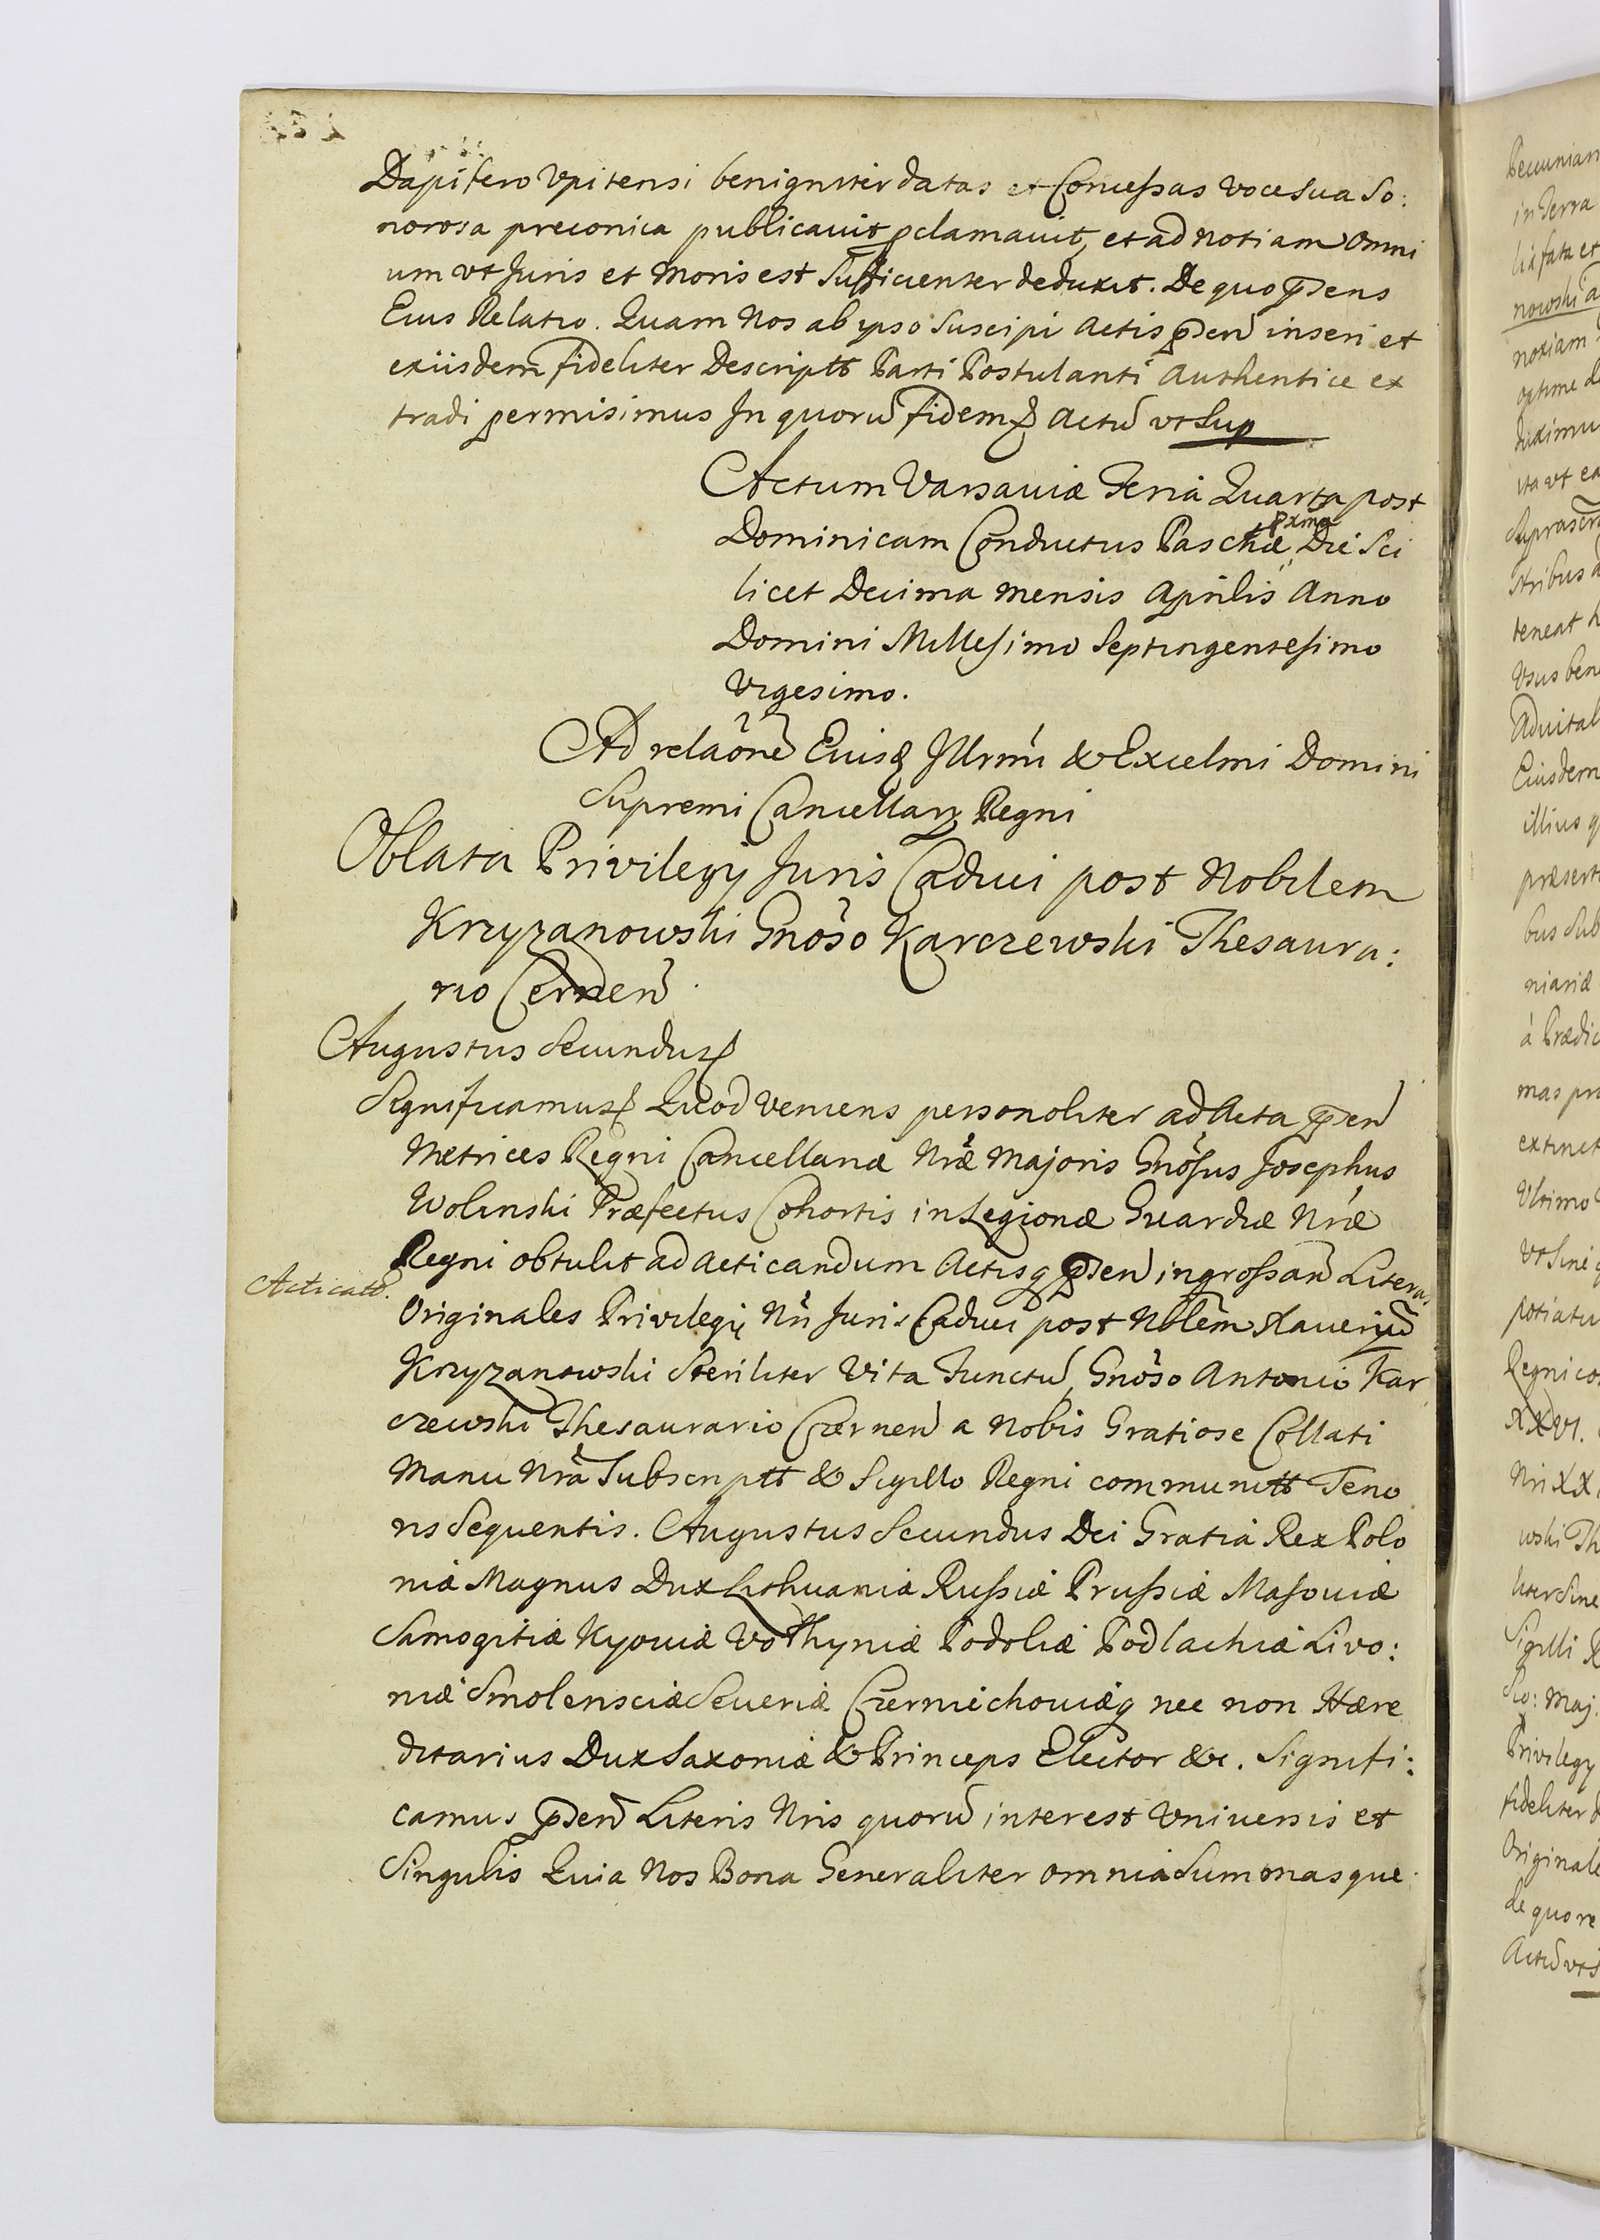 Dapifero Upitensi benigniter datas et Concessas voce sua So:
norosa preconica publicavit pclamavit, et ad notiam omni
um vt Juris et moris est Sufficienter deduxit. De quo pñsens
Eius Relatio. Quam Nos ab ipso suscipi Actis pñsen inseri et
exiisdem fideliter Descriptt Parti Postulanti Authentice ex
tradi permisimus In quorũ fidem Actũ vt Sup
Actum Varsaviæ Feria Quarta post
Dominicam Conductus Paschæ pxma Die Sci
licet Decima mensis Aprilis Anno
Domini Millesimo Septingentesimo
Vigesimo.
Ad relaõnẽ Eiusq Illrmi & Excelmi Domini
Supremi Cancellarij Regni
Oblata Privilegij Juris Caduci post Nobilem
Krzyzanowski Gnõso Karczewski Thesaura:
rio Cernen
Augustus Secundus
Significamus Quod veniens personoliter ad Acta pñsen
Metrices Regni Cancellariæ Nræ Majoris Gnõsus Josephus
Wolinski Præfectus Cohortis in Legionæ Guardiæ Nræ
Regni obtulit ad Acticandum Actisq pñsen ingrossan Litera,
Acticatt.
Originales Privilegij Nri Juris Caduci post Nblem Xaverjũ
Krzyzanowski Steriliter Vita Functũ, Gnõso Antonio Kar
czewski Thesaurario Czernen a Nobis Gratiose Collati
Manu Nrã Subscriptt & Sigillo Regni communitt Teno
ris Sequentis. Augustus Secundus Dei Gratia Rex Polo
niæ Magnus Dux Lithuaniæ Russiæ Prussiæ Masoviæ
Samogitiæ Kyoviæ Volhyniæ Podoliæ Podlachiæ Livo:
niæ Smolensciæ Severiæ Czerniechoviæq nec non Hære
ditarius Dux Saxoniæ & Princeps Elector &c. Signifi:
camus pñsen Literis Nris quorũ interest Universis et
Singulis Quia Nos Bona Generaliter omnia Summasque
Pecuniari
in Terra
nowski
notiam
optime
duximu
ita vt ea
teneat
Usus ben
Advital
Eiusdem
illius
præsert
bus Sub
niariæ
á Prædic
mas pro
extinct
Ultimo
vt sine
potiatu
Regni co
XXVI.
Nri XX
wski Th
liter Sine
Sigilli R
Privilegij
fideliter
Originale
de quo re
Actũ vt S